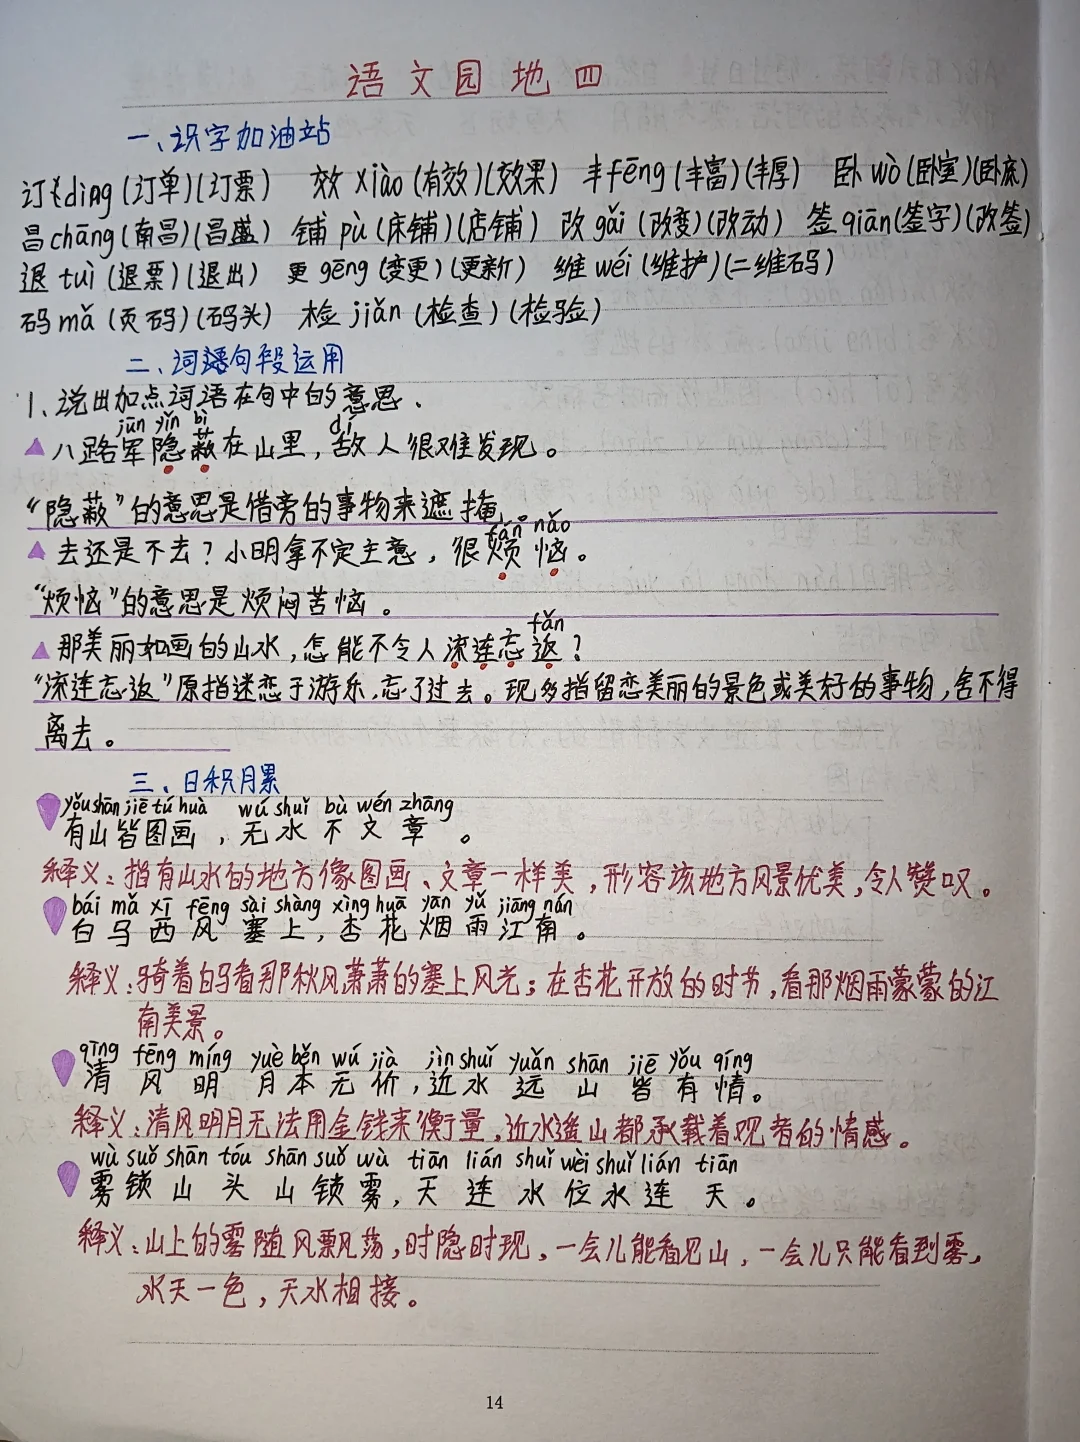 语文园地四
一、识字加油站
订dìng(订单)(订票) 效xiào(有效)(效果) 丰fēng(丰富)(丰厚) 卧wò(卧室)(卧床)
昌chāng(南昌)(昌盛) 铺pù(床铺)(店铺) 改gǎi(改变)(改动) 签qiān(签字)(改签)
退tuì(退票)(退出) 更gēng(变更)(更新) 维wéi(维护)(二维码)
码mǎ(页码)(码头) 检jiǎn(检查)(检验)
二、词语句段运用
1、说出加点词语在句中的意思.
jūn yǐn bì dí
八路军隐蔽在山里,敌人很难发现。
“隐蔽”的意思是借旁的事物来遮掩。
fán nǎo
去还是不去?小明拿不定主意,很烦恼。
“烦恼”的意思是烦闷苦恼。
fǎn
那美丽如画的山水,怎能不令人流连忘返?
“流连忘返”原指迷恋于游乐,忘了过去。现多指留恋美丽的景色或美好的事物,舍不得
离去。
三、日积月累
yǒu shān jiē tú huà wú shuǐ bù wén zhāng
有山皆图画,无水不文章。
释义:指有山水的地方像图画、文章一样美,形容该地方风景优美,令人赞叹。
bái mǎ xī fēng sài shàng xìng huā yān yǔ jiāng nán
白马西风塞上,杏花烟雨江南。
释义:骑着白马看那秋风萧萧的塞上风光;在杏花开放的时节,看那烟雨蒙蒙的江
南美景。
qīng fēng míng yuè běn wú jià jìn shuǐ yuǎn shān jiē yǒu qíng
清风明月本无价,近水远山皆有情。
释义:清风明月无法用金钱来衡量,近水遥山都承载着观者的情感。
wù suǒ shān tóu shān suǒ wù tiān lián shuǐ wèi shuǐ lián tiān
雾锁山头山锁雾,天连水位水连天。
释义:山上的雾随风飘荡,时隐时现,一会儿能看见山,一会儿只能看到雾,
水天一色,天水相接。
14